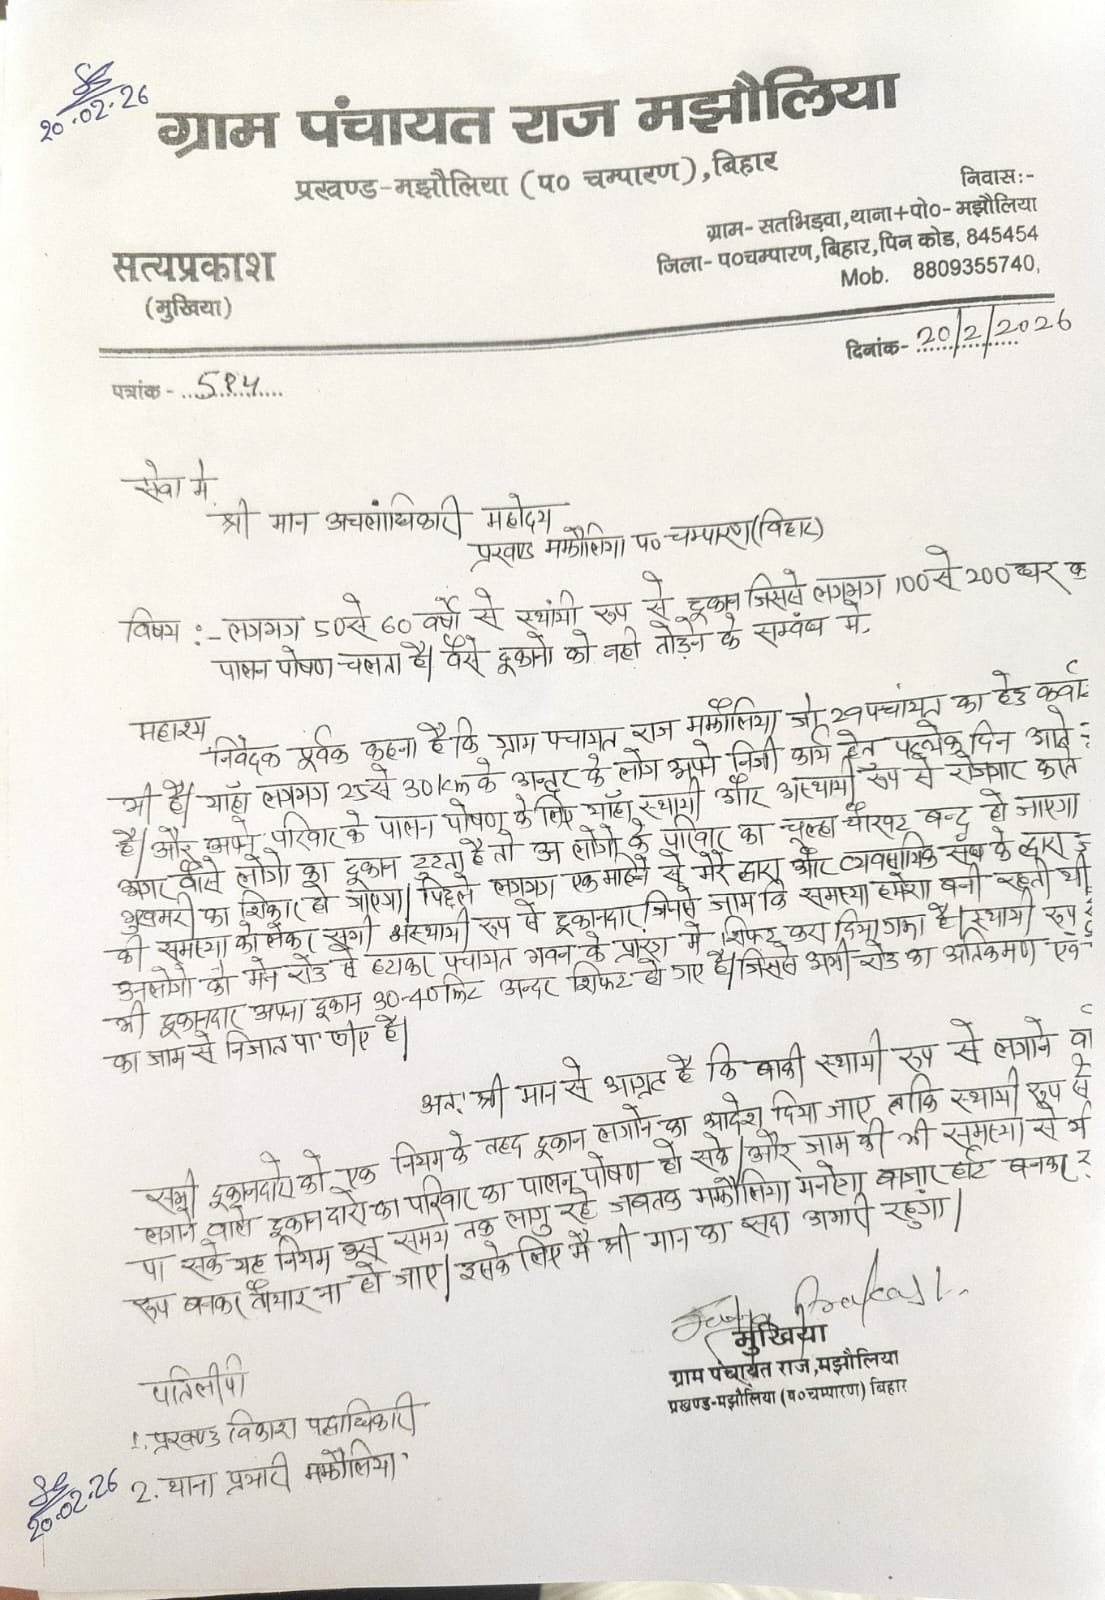 20.02.26
ग्राम पंचायत राज मझौलिया
प्रखण्ड-मझौलिया (प० चम्पारण), बिहार
निवास:-
ग्राम- सतभिड़वा, थाना+पो०- मझौलिया
जिला- प०चम्पारण, बिहार, पिन कोड, 845454
Mob. 8809355740,
सत्यप्रकाश
(मुखिया)
दिनांक- 20/2/2026
पत्रांक -
सेवा में
श्री मान अचलाधिकारी महोदय
प्रखण्ड मझौलिया प० चम्पारण (बिहार)
विषय :- लगभग 50 से 60 वर्षो से स्थायी रूप से दुकान जिससे लगभग 100 से 200 घर क
पालन पोषण चलता है। वैसे दुकानो को नही तोड़ने के सम्बंध में,
महाश्य
निवेदक पूर्वक कहना है कि ग्राम पचायत राज मझौलिया जो 29 पचांयत का हेड
भी है। यहाँ लगभग 25 से 30 km के अन्दर के लोग अपने निजी कार्य हेतू प्रत्येक दिन आते
है। और अपने परिवार के पालन पोषण के लिए यहाँ स्थायी और अस्थायी रूप से रोजगार करते
अगर वैसे लोगो का दूकान टुटता है तो उन लोगो के परिवार का चुल्हा चौखट बन्द हो जाएगा
भुखमरी का शिकार हो जाएगा। पिछले लगभग एक महिने से मेरे द्वारा और व्यवसायिक संघ के द्वारा
की समस्या को लेकर सभी अस्थायी रूप से दूकानदार, जिनसे जाम कि समस्या हमेशा बनी रहती थी
उनलोगो को मेन रोड से हटाकर पचायत भवन के प्रांगण मे शिफ्ट करा दिया गया है। स्थायी रूप
भी दुकानदार अपना दुकान 30-40 फिट अन्दर शिफ्ट हो गए है। जिससे अभी रोड का अतिक्रमण एवं
का जाम से निजात पा गए है।
अतः श्री मान से आग्रह है कि बाकी स्थायी रूप से लगाने वा
सभी दुकानदारो को एक नियम के तहद दुकान लगाने का आदेश दिया जाए ताकि स्थायी रूप से
लगाने वाले दुकानदारो का परिवार का पालन पोषण हो सके। और जाम की भी समस्या से
पा सके यह नियम उस समय तक लागु रहे जबतक मझौलिया मनरेगा बाजार हाट बनकर
रूप बनकर तैयार ना हो जाए। इसके लिए मै श्री मान का सदा आभारी रहुंगा।
मुखिया
ग्राम पंचायत राज, मझौलिया
प्रखण्ड-मझौलिया (प०चम्पारण) बिहार
पतिलीपी
1. प्रखण्ड विकाश पदाधिकारी
2. थाना प्रभारी मझौलिया
20.02.26